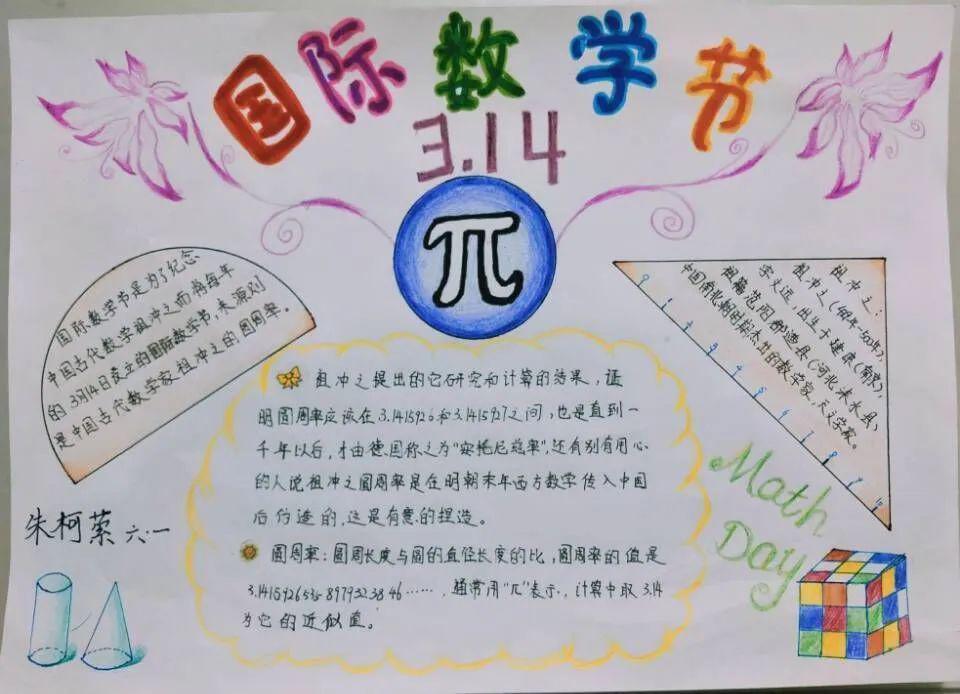 国际数学节
3.14
π
国际数学节是为了纪念
中国古代数学祖冲之而将每年
的3月14日设立的国际数学节,来源则
是中国古代数学家祖冲之的圆周率。
祖冲之:
祖冲之(429年-500年),
字文远,出生于建康(南京),
祖籍范阳郡遒县(河北涞水县),
中国南北朝时期杰出的数学家,天文学家。
祖冲之提出的它研究和计算的结果,证
明圆周率应该在3.1415926和3.1415927之间,也是直到一
千年以后,才由德国称之为"安托尼兹率",还有别有用心
的人说祖冲之圆周率是在明朝末年西方数学传入中国
后仿造的,这是有意的捏造。
圆周率:圆周长度与圆的直径长度的比,圆周率的值是
3.14159265358979323846……,通常用"π"表示,计算中取3.14
为它的近似值。
Math
Day
朱柯萦 六·一